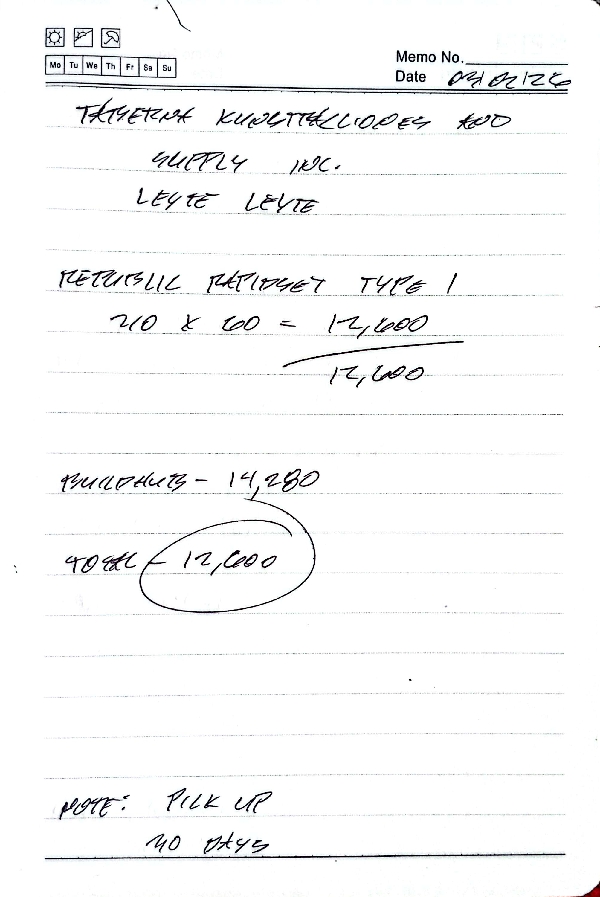 Mo Tu We Th Fr Sa Su
Memo No.
Date 03/02/26
AND
SUPPLY INC.
LEYTE LEYTE
REPUBLIC RAPIDSET TYPE 1
210 x 60 = 12,600
12,600
BUILDHUB - 14,280
TOTAL - 12,600
NOTE: PICK UP
30 DAYS